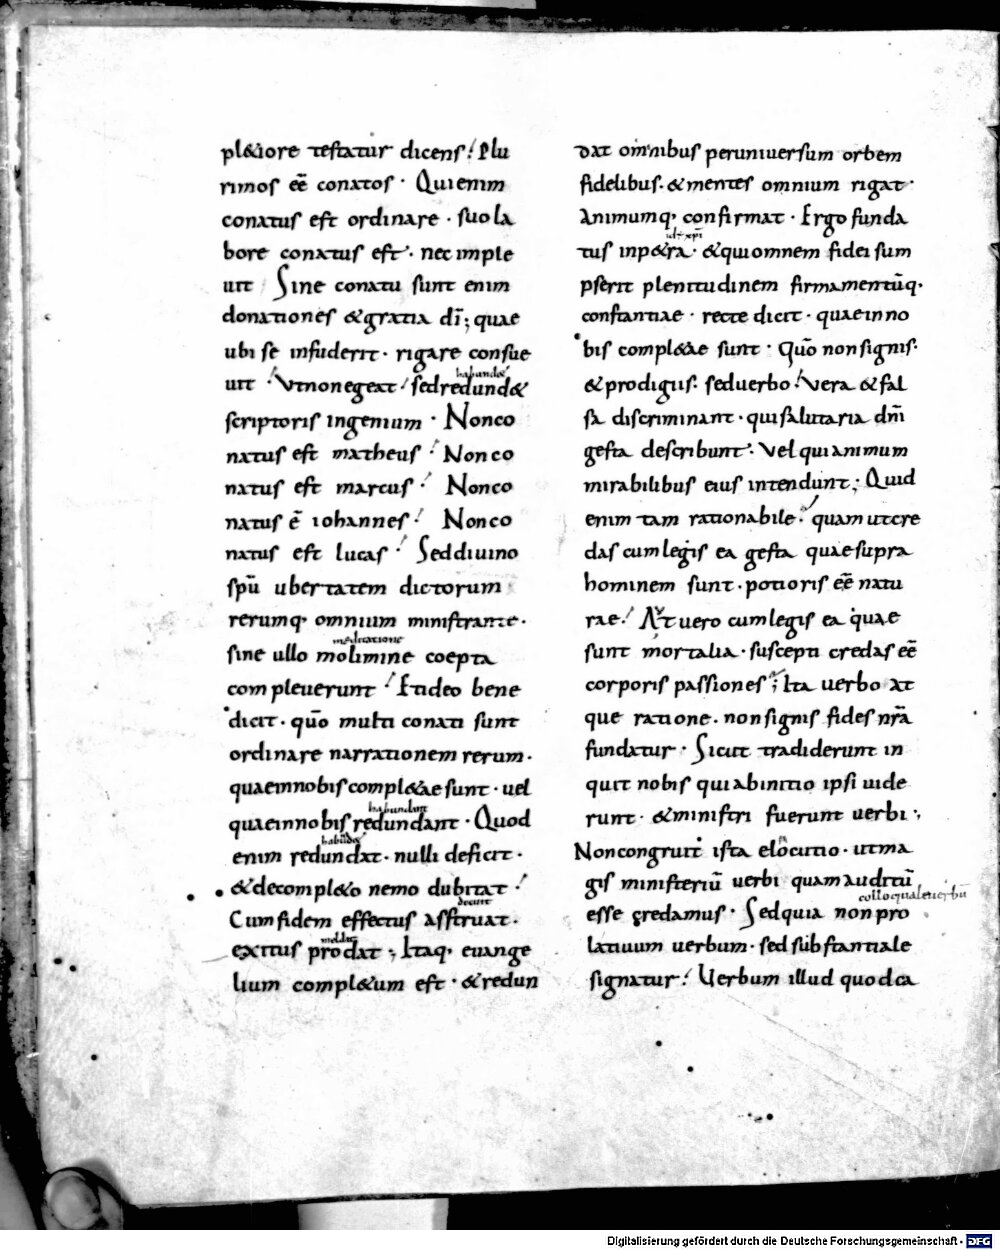 pl&iore testatur dicens! Plu
rimos eē conatos · Qui enim
conatus est ordinare · suo la
bore conatus est · nec imple
uit Sine conatu sunt enim
donationes & gratia dī; quae
ubi se infuderit · rigare consue
uit · Ut non egeat! sed redund&
habund&
scriptoris ingenium · Non co
natus est matheus! Non co
natus est marcus! Non co
natus ē iohannes! Non co
natus est lucas! Sed diuino
spū ubertatem dictorum
rerumq, omnium ministrante ·
meditatione
sine ullo molimine coepta
compleuerunt! Et ideo bene
dicit · quō multi conati sunt
ordinare narrationem rerum ·
quae in nobis compl&ae sunt · uel
habundant
quae in nobis redundant · Quod
enim redundat · nulli deficit ·
& de compl&o nemo dubitat!
Cum fidem effectus asstruat ·
exitus prodat; Itaq, euange
lium compl&um est · & redun
dat omnibus per uniuersum orbem
fidelibus · & mentes omnium rigat ·
Animumq, confirmat · Ergo funda
tus in p&ra · & qui omnem fidei sum
pserit plenitudinem firmamentūq,
constantiae · recte dicit · quae in no
bis compl&ae sunt · Quō non signis ·
& prodigiis · sed uerbo! Vera & fal
sa discriminant · qui salutaria dnī
gesta describunt · Vel qui animum
mirabilibus eius intendunt; Quid
enim tam rationabile · quam ut cre
das cum legis ea gesta quae supra
hominem sunt · potioris eē natu
rae! At uero cum legis ea quae
sunt mortalia · suscepti credas eē
corporis passiones; Ita uerbo at
que ratione · non signis fides nrā
fundatur · Sicut tradiderunt in
quit nobis qui ab initio ipsi uide
runt · & ministri fuerunt uerbi;
Non congruit ista elocutio · ut ma
gis ministeriū uerbi quam auditū
esse credamus · Sed quia non pro
latiuum uerbum · sed substantiale
signatur! Uerbum illud quod ca
Digitalisierung gefördert durch die Deutsche Forschungsgemeinschaft - DFG